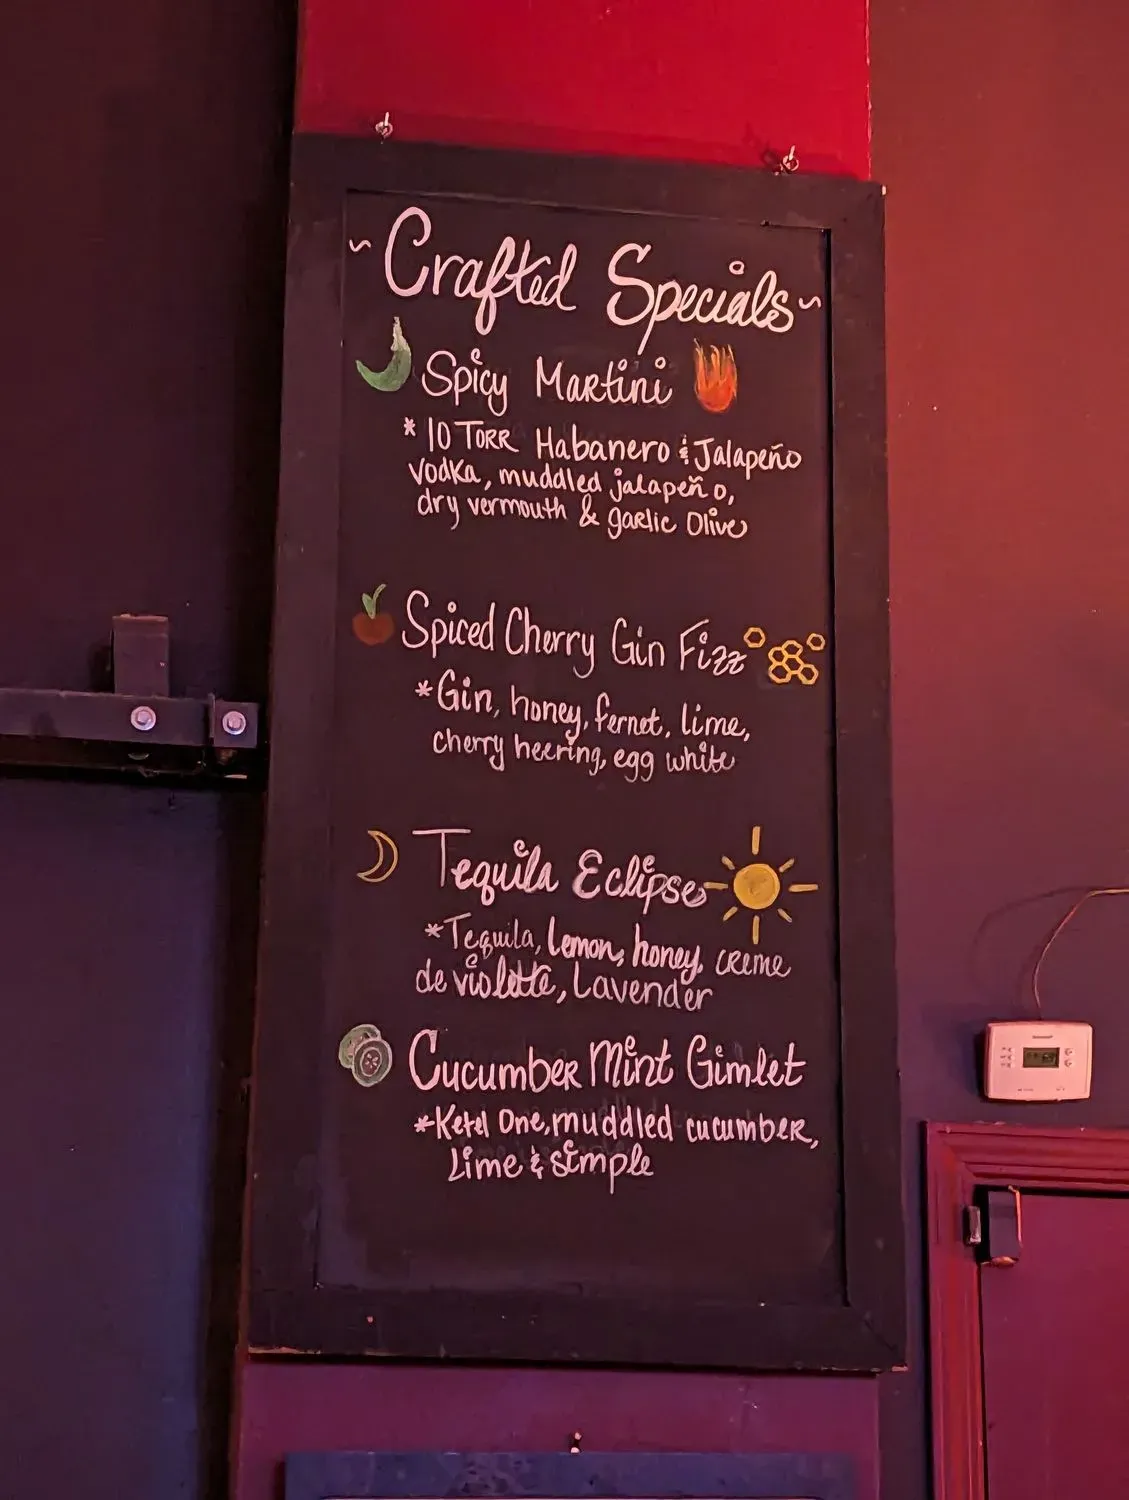 ~ Crafted Specials ~
Spicy Martini
* 10 TORR Habanero & Jalapeño
vodka, muddled jalapeño,
dry vermouth & garlic Olive
Spiced Cherry Gin Fizz
* Gin, honey, fernet, lime,
cherry heering, egg white
Tequila Eclipse
* Tequila, Lemon, honey, creme
de violette, Lavender
Cucumber Mint Gimlet
* Ketel One, muddled cucumber,
Lime & simple